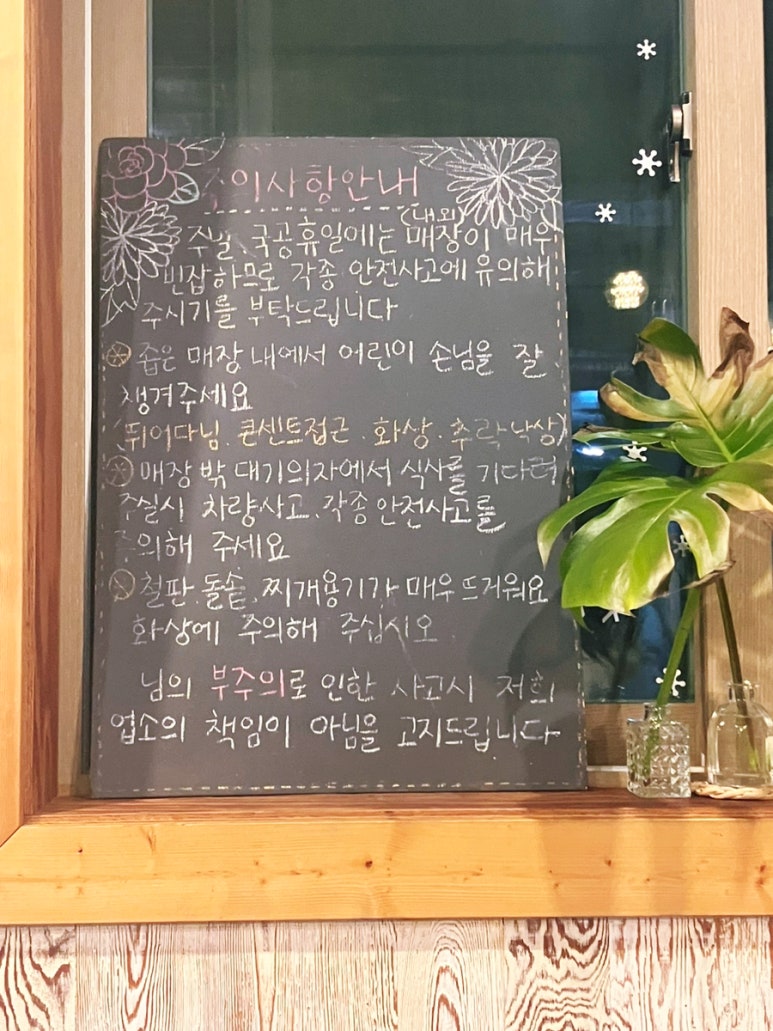 주의사항안내
주말, 국공휴일에는 (내외) 매장이 매우
빈잡하므로 각종 안전사고에 유의해
주시기를 부탁드립니다
좁은 매장 내에서 어린이 손님을 잘
챙겨주세요
(뛰어다님. 콘센트접근. 화상. 추락낙상)
매장 밖 대기의자에서 식사를 기다려
주실시 차량사고, 각종 안전사고를
주의해 주세요
철판, 돌솥, 찌개용기가 매우 뜨거워요
화상에 주의해 주십시오
님의 부주의로 인한 사고시 저희
업소의 책임이 아님을 고지드립니다